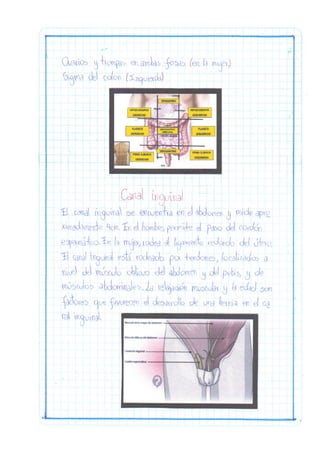 Ovarios y trompas en ambas fosas (en la mujer)
Sigma del colon (Izquierda)
EPIGASTRIO
HIPOCONDRIO DERECHO
HIPOCONDRIO IZQUIERDO
FLANCO DERECHO
FLANCO IZQUIERDO
HIPOGASTRIO
FOSA ILIACA DERECHA
FOSA ILIACA IZQUIERDA
Canal inguinal
El canal inguinal se encuentra en el abdomen y mide apro
ximadamente 4cm. En el hombre, permite el paso del cordón
espermático. En la mujer, rodea al ligamento redondo del útero.
El canal inguinal está rodeado por tendones, localizados a
nivel del músculo oblicuo del abdomen y del pubis, y de
músculos abdominales. La relajación muscular y la edad son
factores que favorecen el desarrollo de una hernia en el ca
nal inguinal.